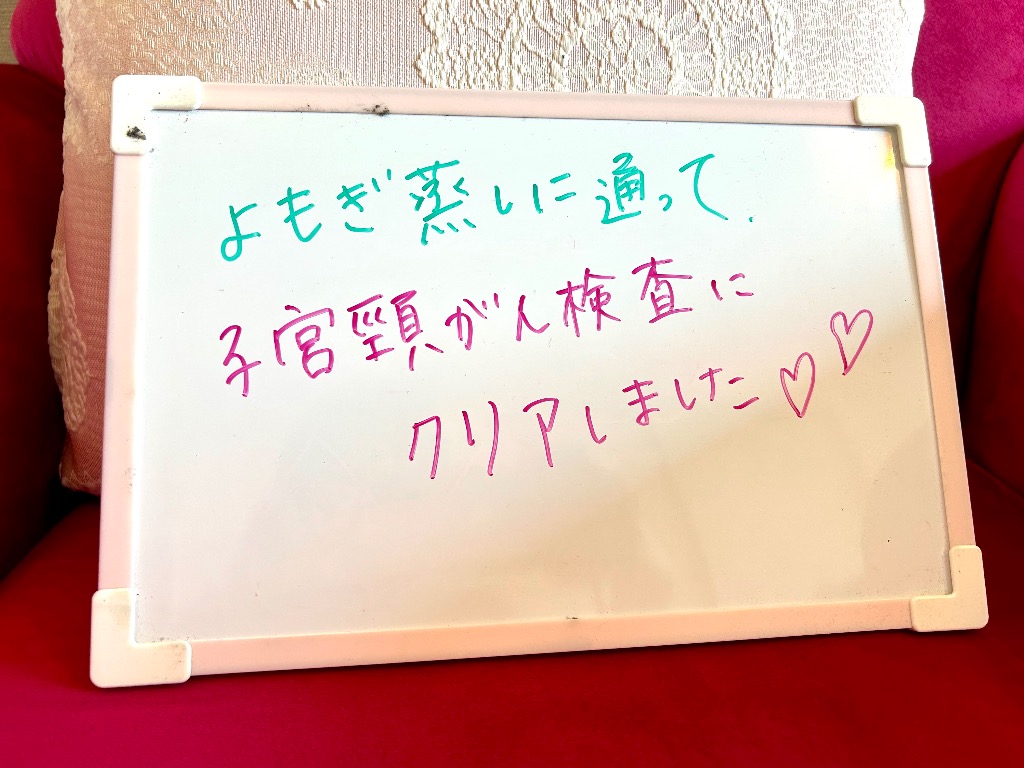 よもぎ蒸しに通って、
子宮頸がん検査に
クリアしました♡♡